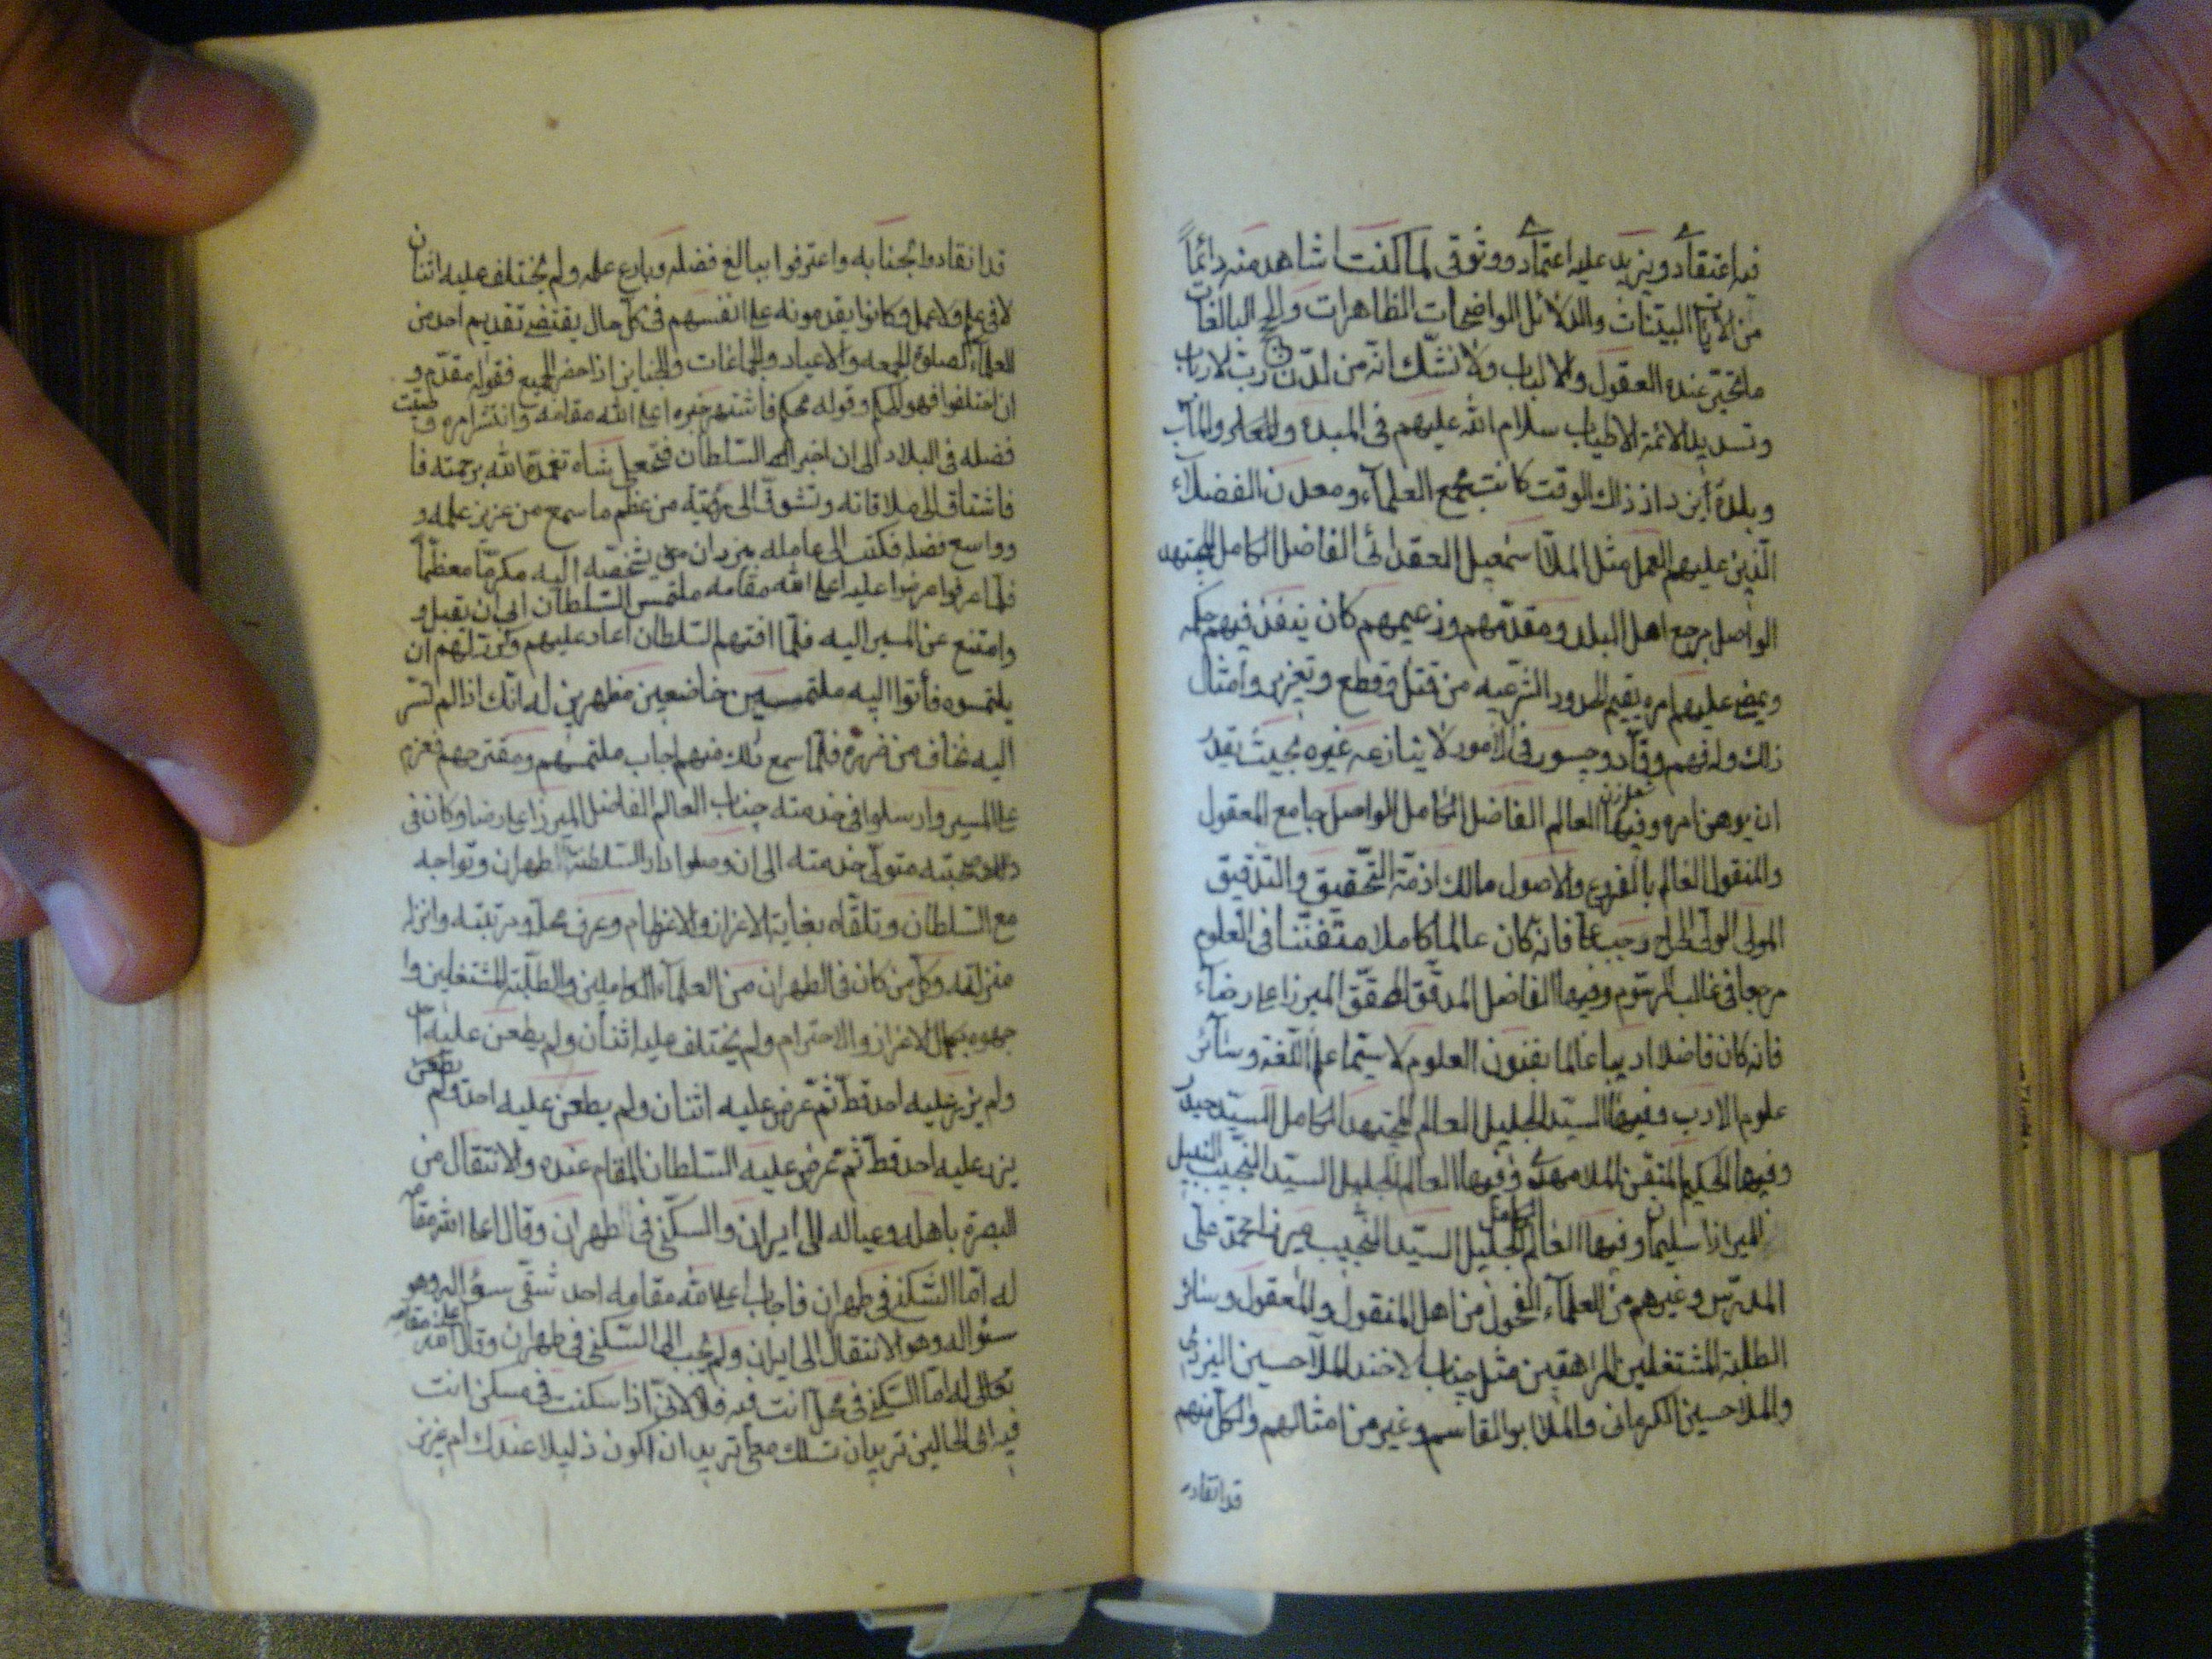 فيه اعتقادي ويزيد عليه اعتمادي ووثوقي لما كنت اشاهد منه دائماً
من الآيات البينات والدلائل الواضحات الظاهرات والحجج البالغات
ما تحير عنده العقول والالباب ولا نشك انه من لدن رب الارباب
وتسديد الائمة الاطياب سلام الله عليهم في المبدء والمآب
وبلدة يزد اذ ذاك الوقت كانت مجمع العلمآء ومعدن الفضلآء
الذين عليهم العمل مثل الملا اسمعيل العقدائي الفاضل الكامل المجتهد
الواصل مرجع اهل البلد ومقدمهم وزعيمهم كان ينفذ فيهم حكمه
ويمضي عليهم امره يقيم الحدود الشرعيه من قتل وقطع وتعزير وامثال
ذلك وله فهم وقاد وجسور في الامور لا ينازعه غيره بحيث يقدر
ان يوهن امره وفيها العالم الفاضل الكامل الواصل جامع المعقول
والمنقول العالم بالفروع والاصول مالك ازمة التحقيق والتدقيق
المولى الولي الحاج رجبعلي فانه كان عالما كاملا متفننا في العلوم
مرجعا في غالب الرسوم وفيها الفاضل المدقق المحقق الميرزا علي رضآء
فانه كان فاضلا اديبا عالما بفنون العلوم لا سيما علم اللغة وسآئر
علوم الادب وفيها السيد الجليل العالم المجتهد الكامل السيد حيدر
وفيها الحكيم المتقن الملا مهدي وفيها العالم الجليل السيد النجيب النبيل
الميرزا سليمان وفيها العالم الكامل الجليل السيد النجيب ميرزا محمد علي
المدرس وغيرهم من العلمآء الفحول من اهل المنقول والمعقول وسائر
الطلبة المشتغلين المراهقين مثل جناب الاخند الملا حسين اليزدي
والملا حسين الكرماني والملا ابو القاسم وغيرهم من امثالهم والكل منهم
قد انقادوا
قد انقادوا لجنابه واعترفوا ببالغ فضله وبارع علمه ولم يختلف عليه اثنان
لا في علم ولا عمل وكانوا يقدمونه على انفسهم في كل حال يقتضي تقديم احد من
العلمآء لصلوة الجمعه والاعياد والجماعات والجنايز اذا حضر الجميع فقوله مقدم و
ان اختلفوا فهو الحكم وقوله محكم فاشتهر خبره اعلى الله مقامه وانتشر امره وصيت
فضله في البلاد الى ان اخبر السلطان فتحعلي شاه تغمده الله برحمته فا
فاشتاق الى ملاقاته وتشوق الى رؤيته من عظم ما سمع من غزير علمه و
وواسع فضله فكتب الى عامله بيزد ان يشخصه اليه مكرماً معظماً
فلما عرفوا عرضوا عليه اعلى الله مقامه ملتمس السلطان ابى ان يقبل و
وامتنع عن المسير اليه فلما السلطان اعاد عليهم ان
يلتمسوه فأتوا اليه ملتمسين خاضعين مظهرين له انك اذا لم تسر
اليه نخاف من ضرره فلما سمع ذلك منهم اجاب ملتمسهم ومقترحهم فعزم
على المسير وارسلوا في خدمته جناب العالم الفاضل الميرزا علي رضا وكان في
صحبته متولي خدمته الى ان وصلوا دار السلطنة الطهران وتواجه
مع السلطان وتلقاه بغاية الاعزاز والاعظام وعرف محله ومرتبته وانزله
منزلته وكل من كان في الطهران من العلمآء الواصلين والطلبة المشتغلين وا
بكمال الاعزاز والاحترام ولم يختلف عليه اثنان ولم يطعن عليه
ولم يزر عليه احد قط ثم عرض عليه اثنان ولم يطعن عليه احد ولم يطعن
يزد عليه احد قط ثم عرض عليه السلطان المقام عنده والانتقال من
البصرة باهله وعياله الى ايران والسكنى في الطهران وقال اعلى الله مقامه
له اما السكنى في طهران فاجاب اعلى الله مقامه احد شقي سؤاله وهو
سؤاله وهو الانتقال الى ايران ولم يجب الى السكنى في طهران وقال اعلى الله مقامه
تعالى له اما السكنى في محل انت فيه فلا لاني اذا سكنت في مسكن انت
فيه اي الحالين تريد ان تسلك معي أتريد ان اكون ذليلا عندك ام عزيز